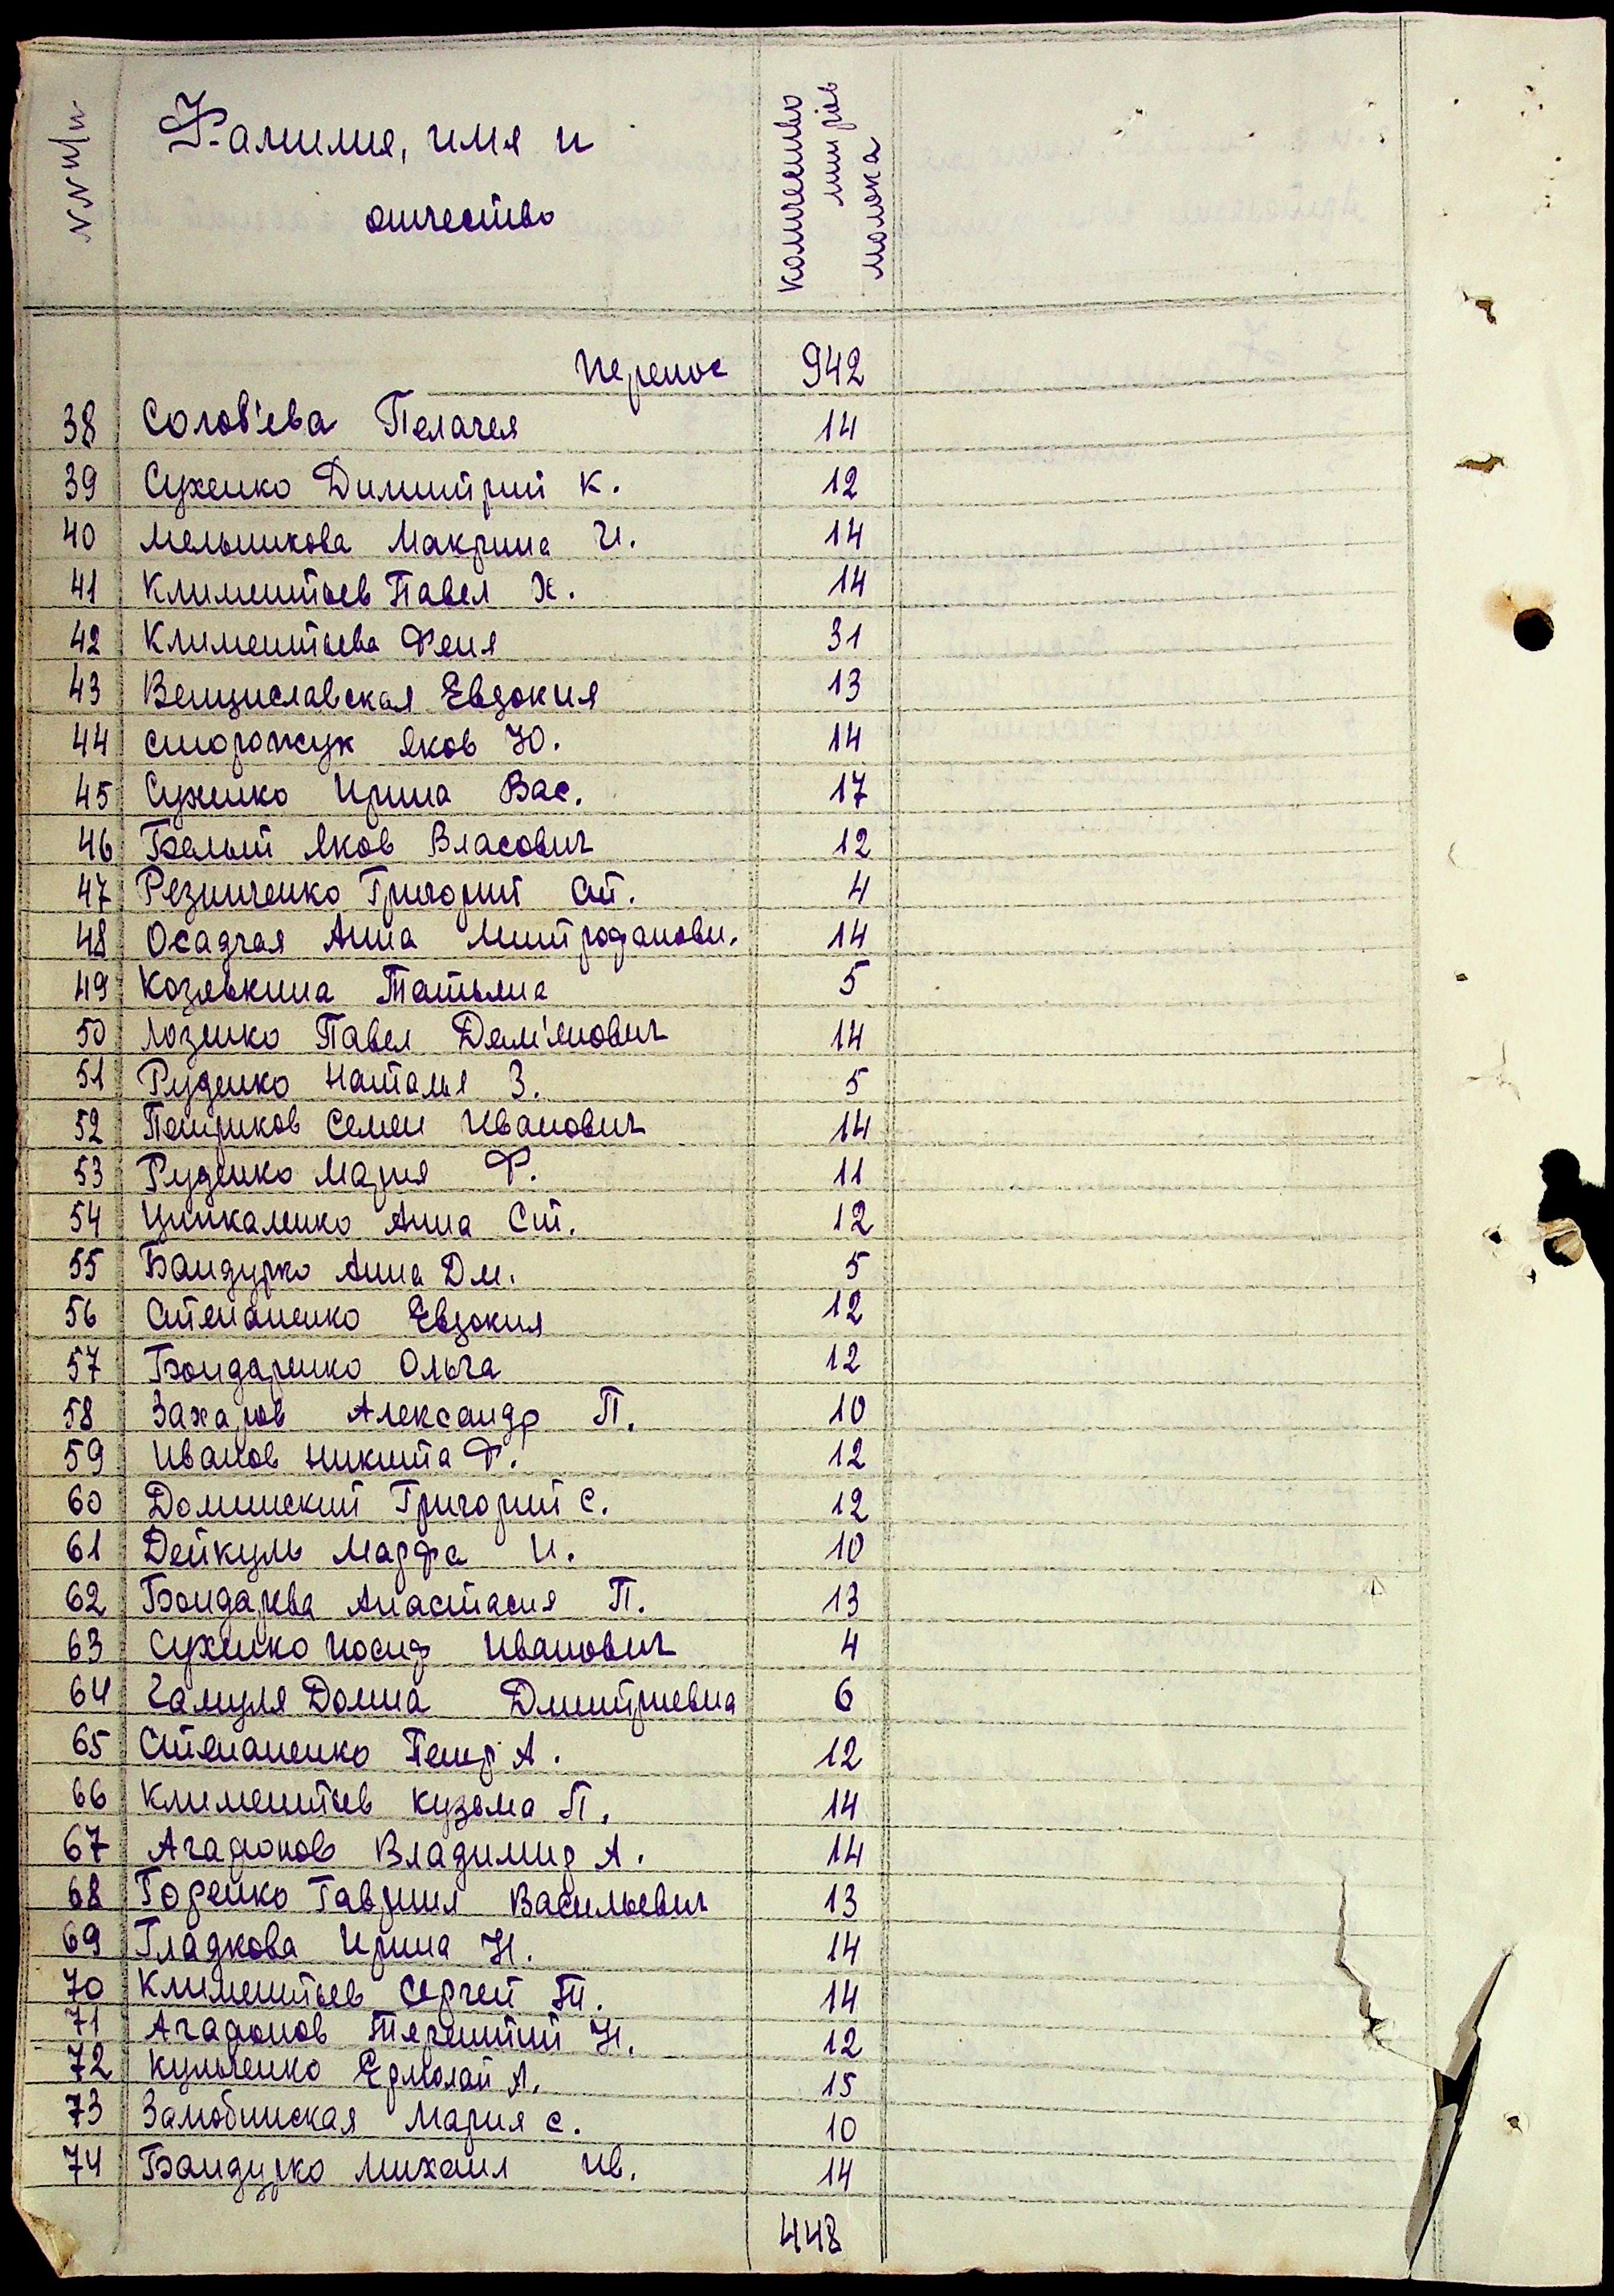 №№ п/п
Фамилия, имя и
отчество
количество
литров
молока
Перенос 942
38 Солов'ева Пелагея 14
39 Сухенко Димитрий К. 12
40 Мельникова Макрина И. 14
41 Климентьев Павел Х. 14
42 Климентьева Феня 31
43 Венциславская Евдокия 13
44 Сторожук Яков Ю. 14
45 Сухенко Ирина Вас. 17
46 Белый Яков Власович 12
47 Резниченко Григорий Ст. 4
48 Осадчая Анна Митрофанови. 14
49 Козявкина Татьяна 5
50 Лозенко Павел Дем'янович 14
51 Руденко Наталья З. 5
52 Петриков Семен Иванович 14
53 Руденко Мария Ф. 11
54 Ципкаленко Анна Ст. 12
55 Бандурко Анна Дм. 5
56 Степаненко Евдокия 12
57 Бондаренко Ольга 12
58 Захаров Александр П. 10
59 Иванов Никита Ф. 12
60 Долинский Григорий С. 12
61 Дейкуль Марфа И. 10
62 Бондарева Анастасия П. 13
63 Сухенко Иосиф Иванович 4
64 Галуля Домна Дмитриевна 6
65 Степаненко Петр А. 12
66 Климентьев Кузьма П. 14
67 Агафонов Владимир А. 14
68 Горенко Гавриил Васильевич 13
69 Гладкова Ирина Н. 14
70 Климентьев Сергей Т. 14
71 Агафонов Терентий Н. 12
72 Кульченко Ермолай А. 15
73 Замобинская Мария С. 10
74 Бандурко Михаил Ив. 14
448